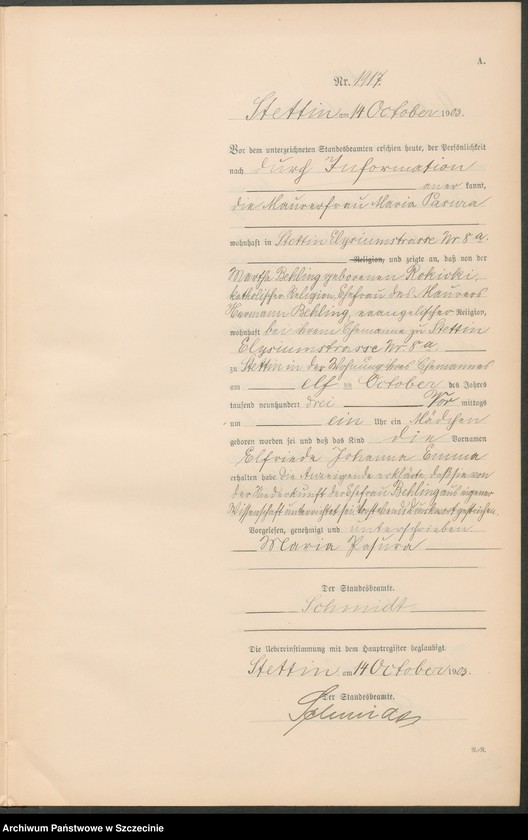 A.
Nr. 1917.
Stettin am 14 October 1903.
Vor dem unterzeichneten Standesbeamten erschien heute, der Persönlichkeit
nach durch Information
aner kannt,
die Maurerfrau Maria Pasura
wohnhaft in Stettin Elysiumstrasse Nr. 8 a.
Religion, und zeigte an, daß von der
Martha Behling geborenen Rokicki,
katholischer Religion, Ehefrau des Maurers
Hermann Behling, evangelischer Religion,
wohnhaft bei ihrem Ehemanne zu Stettin
Elysiumstrasse Nr. 8 a.
zu Stettin in der Wohnung ihres Ehemannes
am elf ten October des Jahres
tausend neunhundert drei Vor mittags
um ein Uhr ein Mädchen
geboren worden sei und daß das Kind die Vornamen
Elfriede Johanna Emma
erhalten habe. Die Anzeigende erklärte, daß sie von
der Niederkunft der Ehefrau Behling aus eigener
Wissenschaft unterrichtet sei. Vorstehend Druckwort gestrichen.
Vorgelesen, genehmigt und unterschrieben
Maria Pasura
Der Standesbeamte.
Schmidt
Die Uebereinstimmung mit dem Hauptregister beglaubigt.
Stettin am 14 October 1903.
Der Standesbeamte.
Schmidt
Archiwum Państwowe w Szczecinie